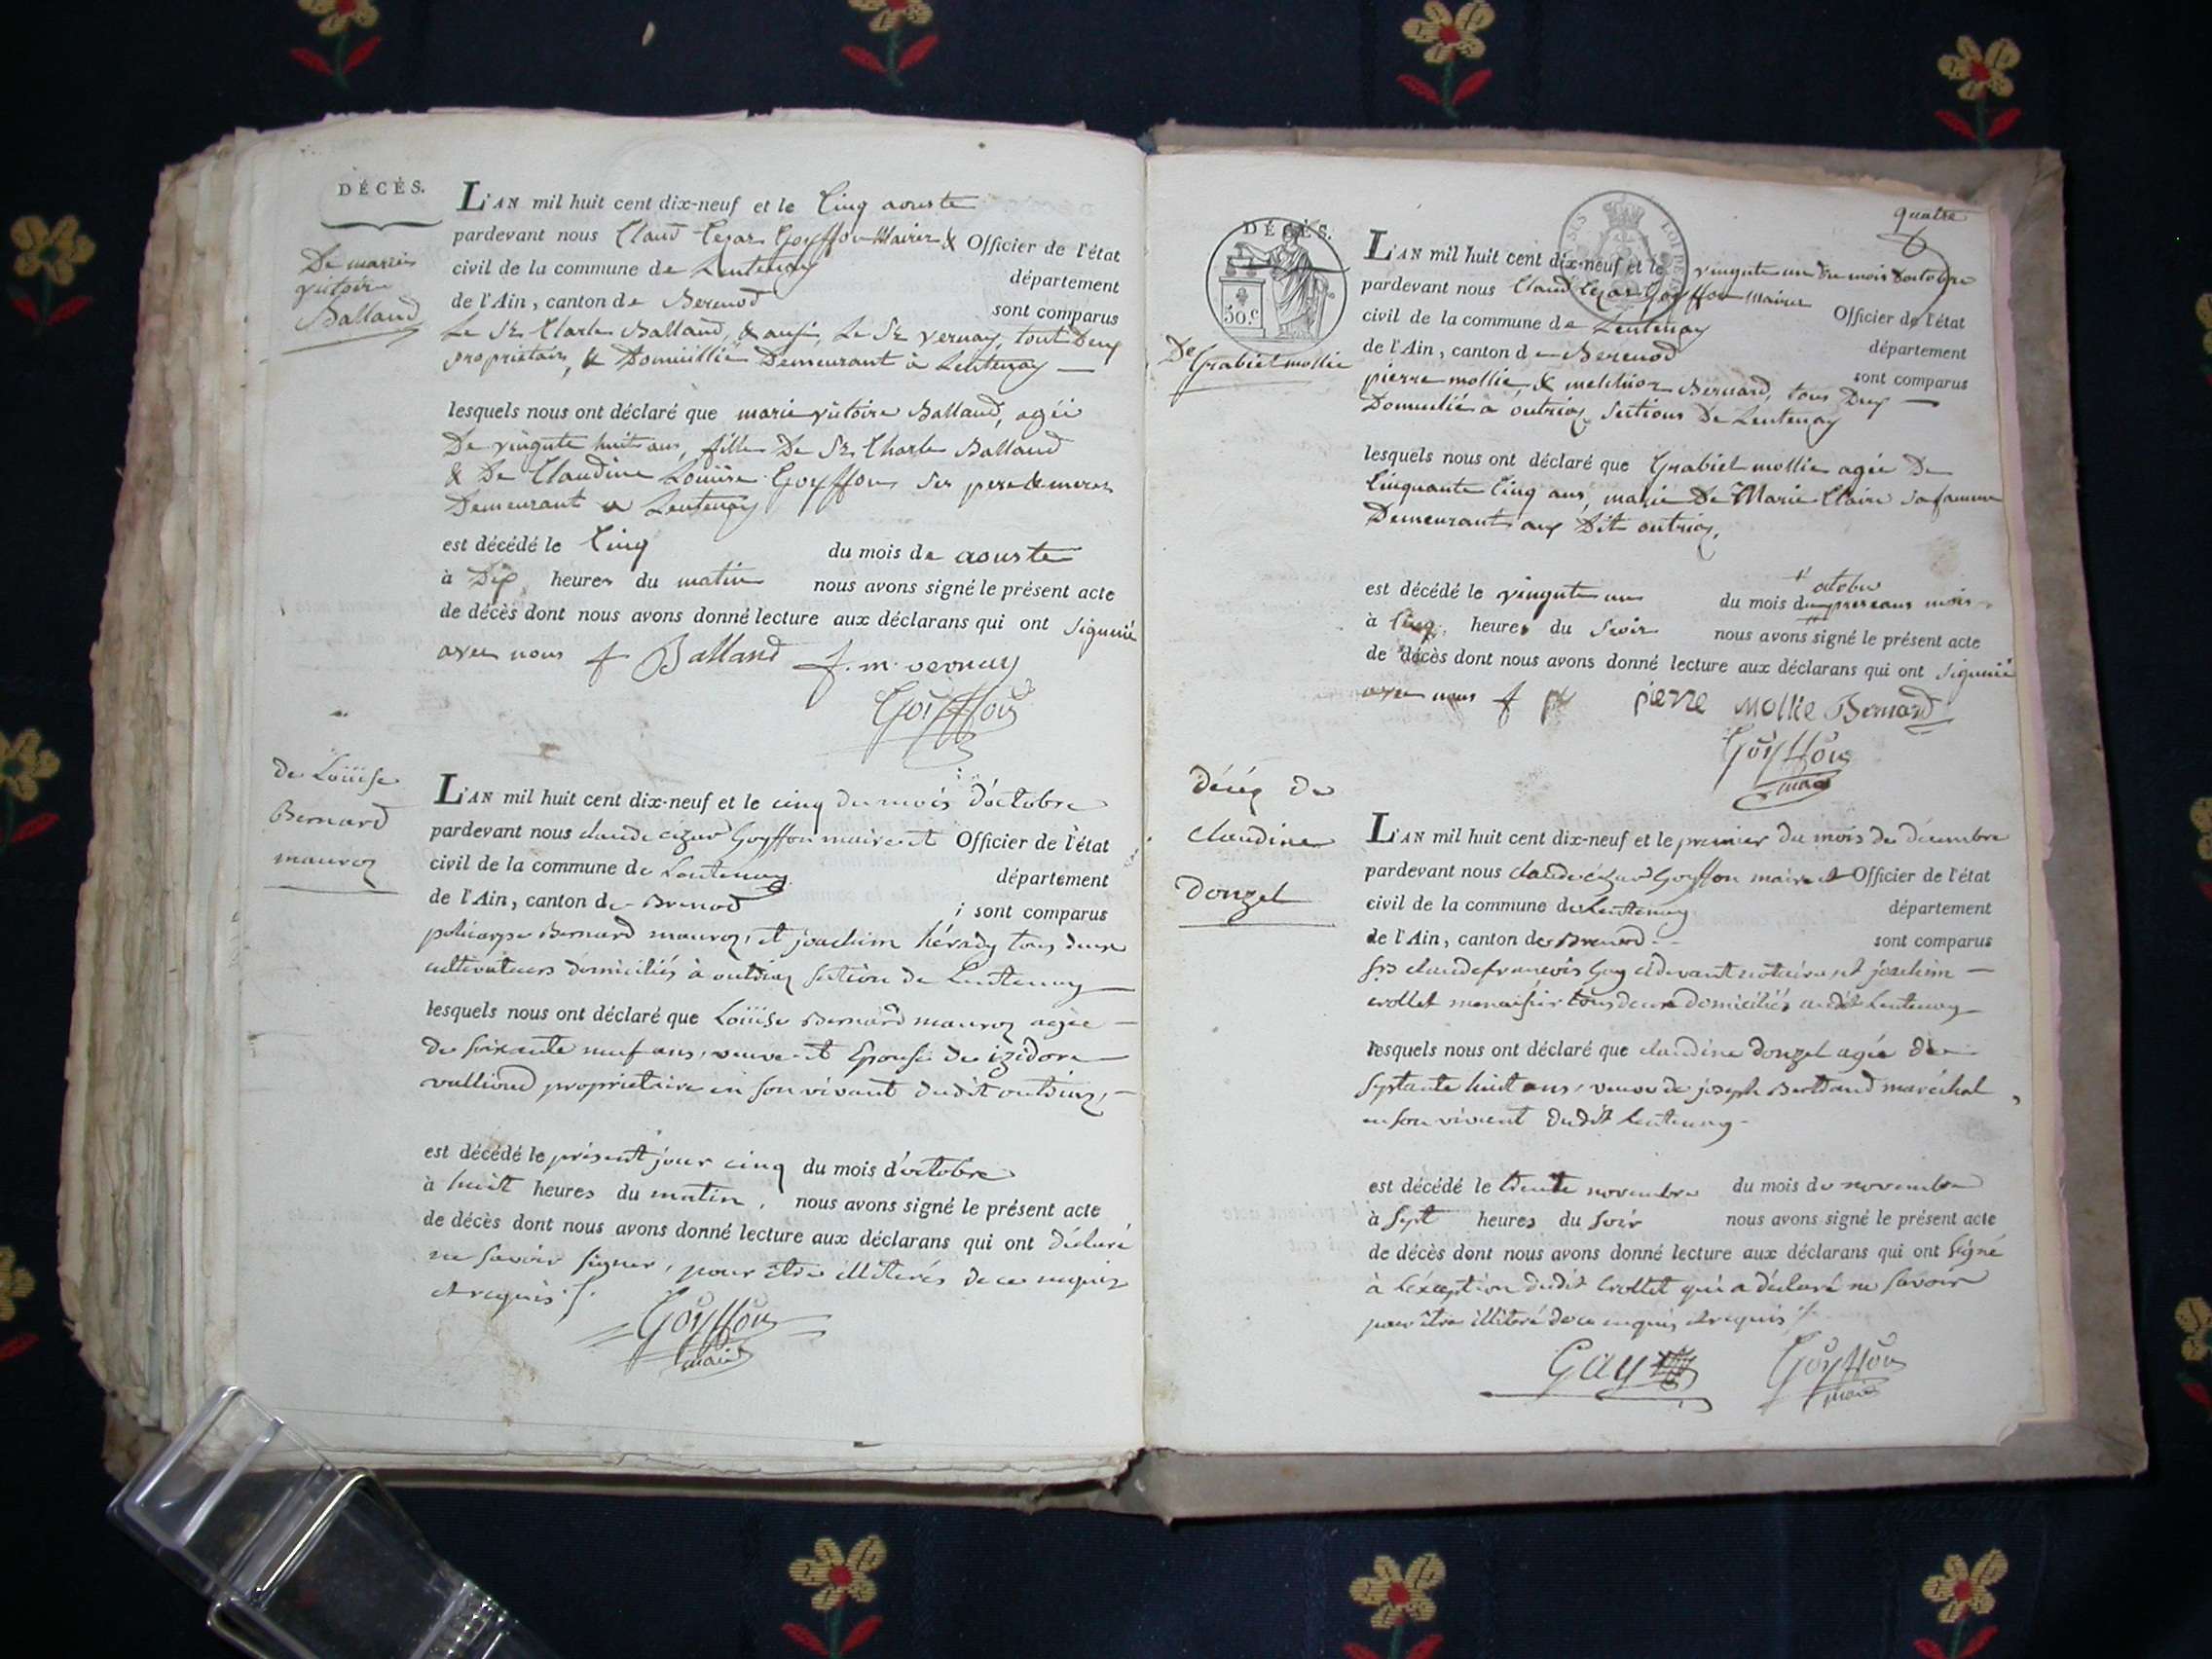 DÉCÉS.
De marie
victoire
Balland
L'AN mil huit cent dix-neuf et le Cinq aouste
pardevant nous Claud Cezar Goyffon Mairer & Officier de l'état
civil de la commune de Lentenay département
de l'Ain, canton de Berenod sont comparus
Le Sr Charle Balland, & ausi, Le Sr vernay, tout Deux
proprietair, & Domicillié Demeurant à Lentenay
lesquels nous ont déclaré que marie victoire Balland, agée
De vingute huit ans, fille De Sr Charle Balland
& De Claudine Louise Goyffon ses pere & merer
Demeurant a Lentenay
est décédé le Cinq du mois de aouste
à Dix heures du matin nous avons signé le présent acte
de décès dont nous avons donné lecture aux déclarans qui ont signié
avec nous Balland f. m. vernay
Goyffon
de Loüise
Bernard
mauroz
L'AN mil huit cent dix-neuf et le cinq du mois d'octobre
pardevant nous claude cézar Goyffon maire et Officier de l'état
civil de la commune de Lentenay département
de l'Ain, canton de Brenod sont comparus
policarpe Bernard mauroz, et joachim hérady tous deux
cultivateurs domiciliés à outriaz section de Lentenay
lesquels nous ont déclaré que Loüise Bernard mauroz agée
de soixante neuf ans, veuve et Epouse de izidore
vulliond proprietaire en son vivant dudit outriaz,
est décédé le présent jour cinq du mois d'octobre
à huit heures du matin, nous avons signé le présent acte
de décès dont nous avons donné lecture aux déclarans qui ont déclaré
ne savoir signer, pour être illiterés de ce enquis
et requis
Goyffon
maire
quatre
DÉCÉS.
50.c
De Grabiel mollie
L'AN mil huit cent dix-neuf et le vingute un du mois doctobre
pardevant nous Claud Cezar Goyffon mairer Officier de l'état
civil de la commune de Lentenay département
de l'Ain, canton de Berenod sont comparus
pierre mollie & melchior Bernard, tous Deux
Domicilié a outriaz sections De Lentenay
lesquels nous ont déclaré que Grabiel mollie agée De
Cinquante Cinq ans, marie De Marie Claire sa famme
Demeurant aux Dit outriaz.
octobre
est décédé le vingute un du mois du mois
à Cinq heures du Soir nous avons signé le présent acte
de décès dont nous avons donné lecture aux déclarans qui ont signié
avec nous pierre mollie Bernard
Goyffon
maire
décéz de
claudine
donzel
L'AN mil huit cent dix-neuf et le premier du mois de décembre
pardevant nous claude cézar Goyffon maire et Officier de l'état
civil de la commune de Lentenay département
de l'Ain, canton de Brenod sont comparus
srs claude françois Gay cidevant notaire, et joachim
crollet menaisier tous deux domiciliés audit Lentenay
lesquels nous ont déclaré que claudine donzel agée de
septante huit ans, veuve de joseph Bertrand maréchal
en son vivant dudit Lentenay
est décédé le trente novembre du mois de novembre
à sept heures du soir nous avons signé le présent acte
de décès dont nous avons donné lecture aux déclarans qui ont signé
à l'exception dudit Crollet qui a déclaré ne savoir
pour être illiteré de ce enquis et requis
Gay Goyffon
maire